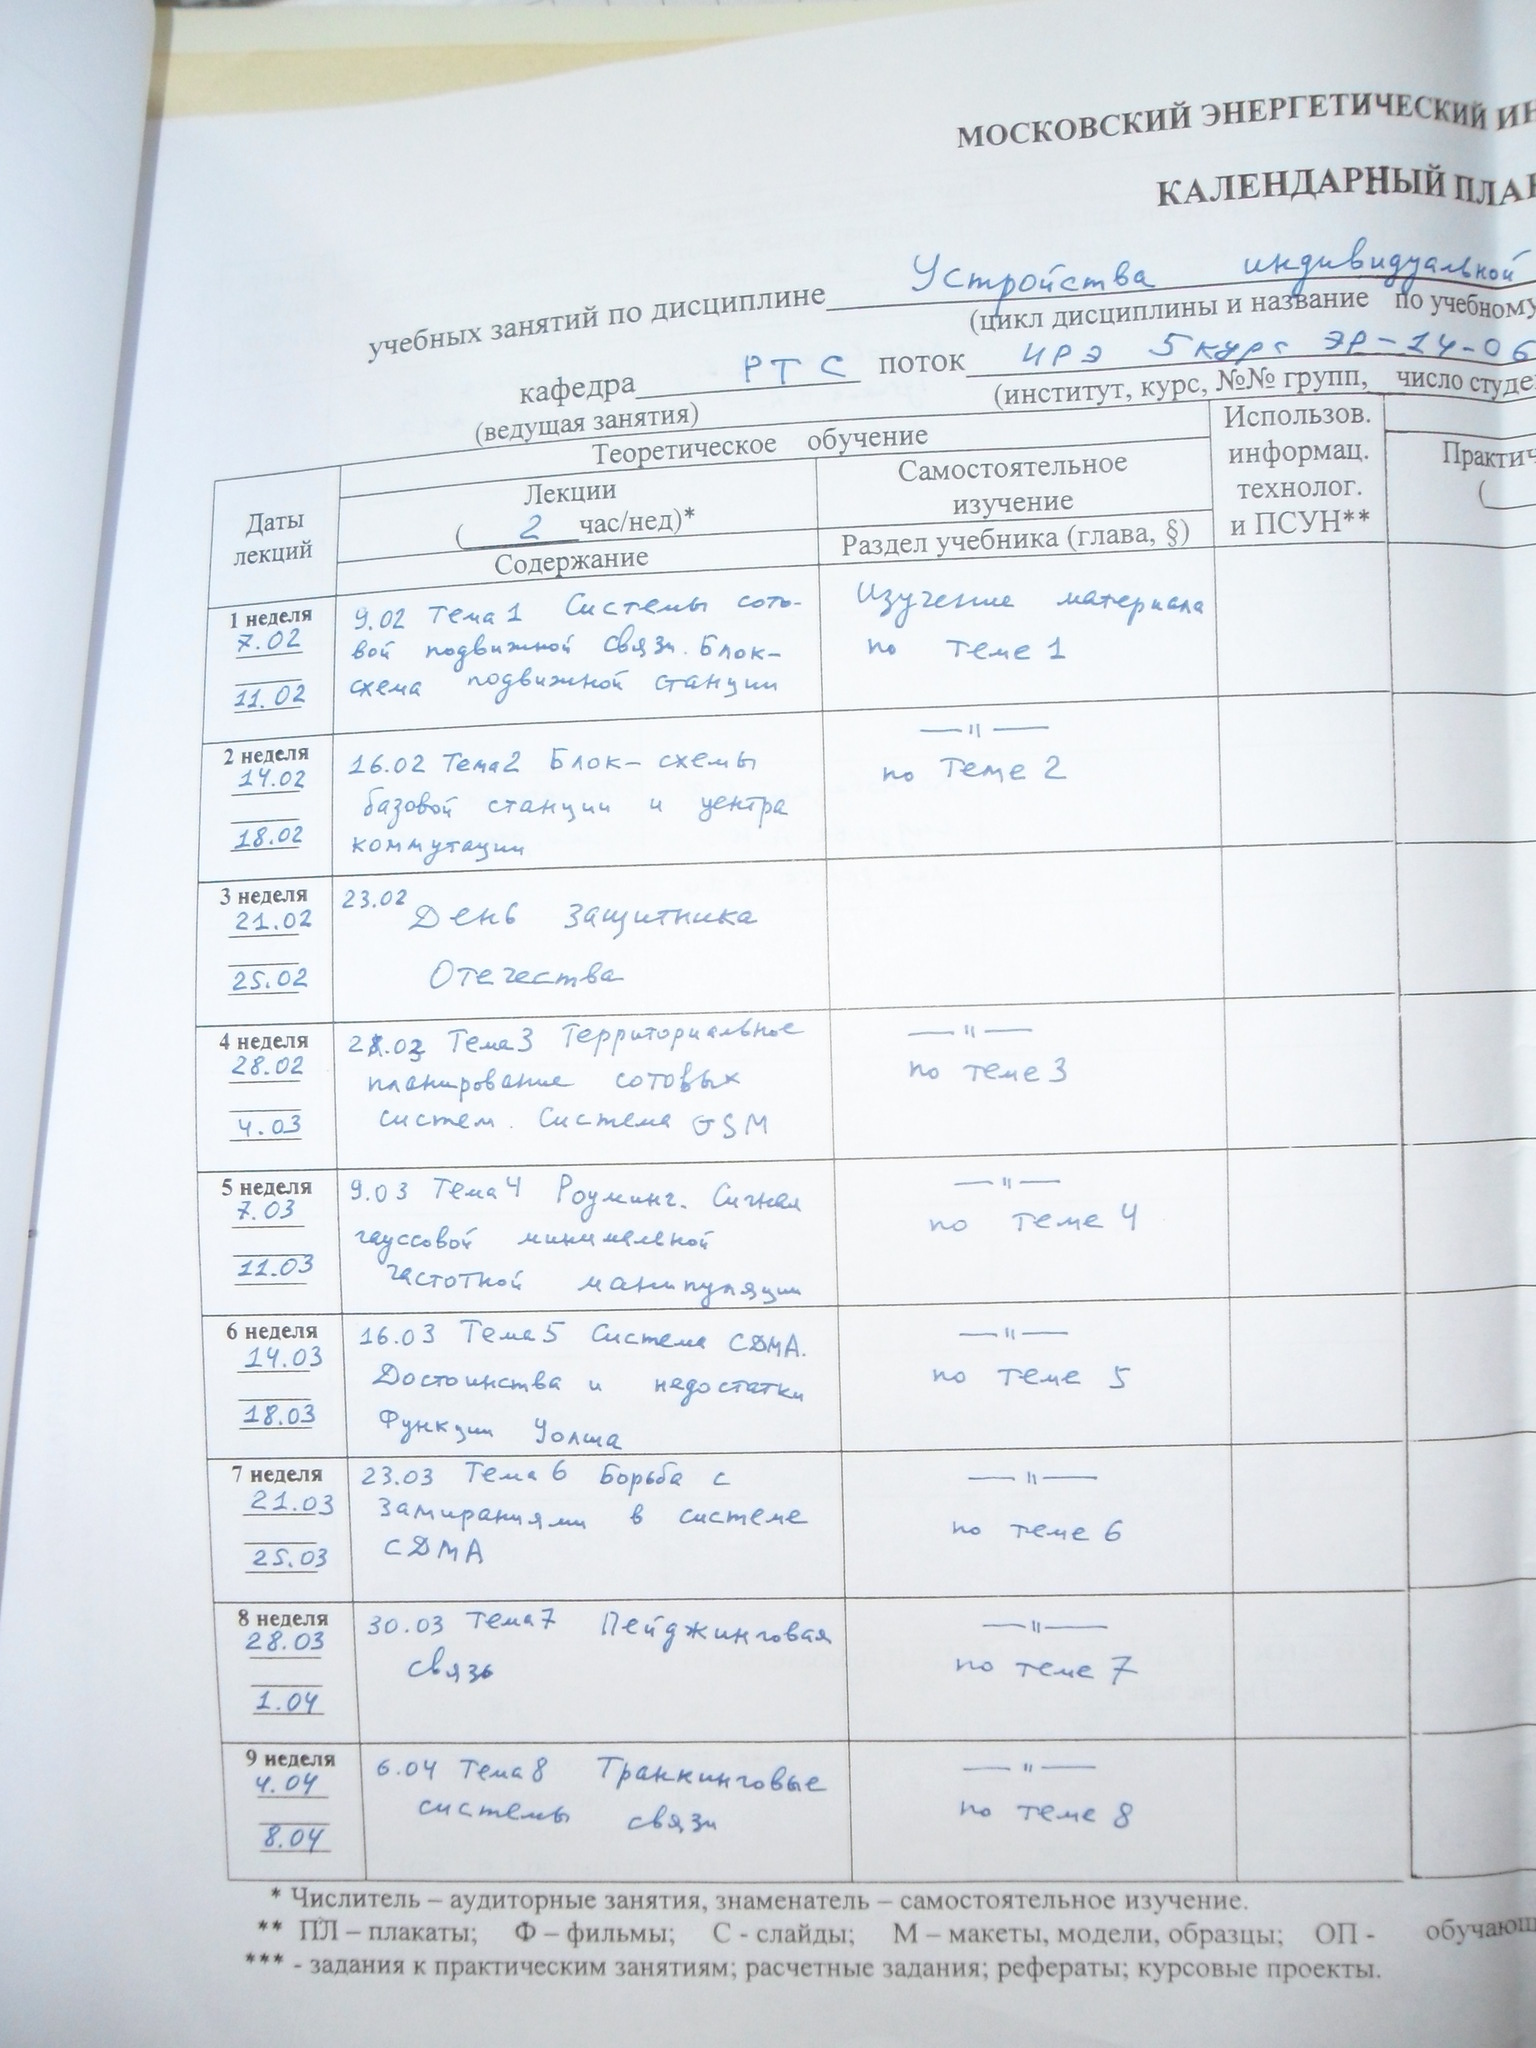 МОСКОВСКИЙ ЭНЕРГЕТИЧЕСКИЙ ИН
КАЛЕНДАРНЫЙ ПЛАН
учебных занятий по дисциплине Устройства индивидуальной
(цикл дисциплины и название по учебному
кафедра РТС поток ИРЭ 5 курс ЭР-14-06
(ведущая занятия) (институт, курс, №№ групп, число студе
Даты
лекций
Теоретическое обучение
Лекции
( 2 час/нед)*
Содержание
Самостоятельное
изучение
Раздел учебника (глава, §)
Использов.
информац.
технолог.
и ПСУН**
Практич
(
1 неделя
7.02
11.02
9.02 Тема 1 Системы сото-
вой подвижной связи. Блок-
схема подвижной станции
Изучение материала
по теме 1
2 неделя
14.02
18.02
16.02 Тема 2 Блок-схемы
базовой станции и центра
коммутации
—"—
по теме 2
3 неделя
21.02
25.02
23.02
День защитника
Отечества
4 неделя
28.02
4.03
Тема 3 Территориальное
планирование сотовых
систем. Система GSM
—"—
по теме 3
5 неделя
7.03
11.03
9.03 Тема 4 Роуминг. Сигнал
гауссовой минимальной
частотной манипуляции
—"—
по теме 4
6 неделя
14.03
18.03
16.03 Тема 5 Система CDMA.
Достоинства и недостатки
Функции Уолша
—"—
по теме 5
7 неделя
21.03
25.03
23.03 Тема 6 Борьба с
замираниями в системе
CDMA
—"—
по теме 6
8 неделя
28.03
1.04
30.03 Тема 7 Пейджинговая
связь
—"—
по теме 7
9 неделя
4.04
8.04
6.04 Тема 8 Транкинговые
системы связи
—"—
по теме 8
* Числитель – аудиторные занятия, знаменатель – самостоятельное изучение.
** ПЛ – плакаты; Ф – фильмы; С - слайды; М – макеты, модели, образцы; ОП - обучающ
*** - задания к практическим занятиям; расчетные задания; рефераты; курсовые проекты.